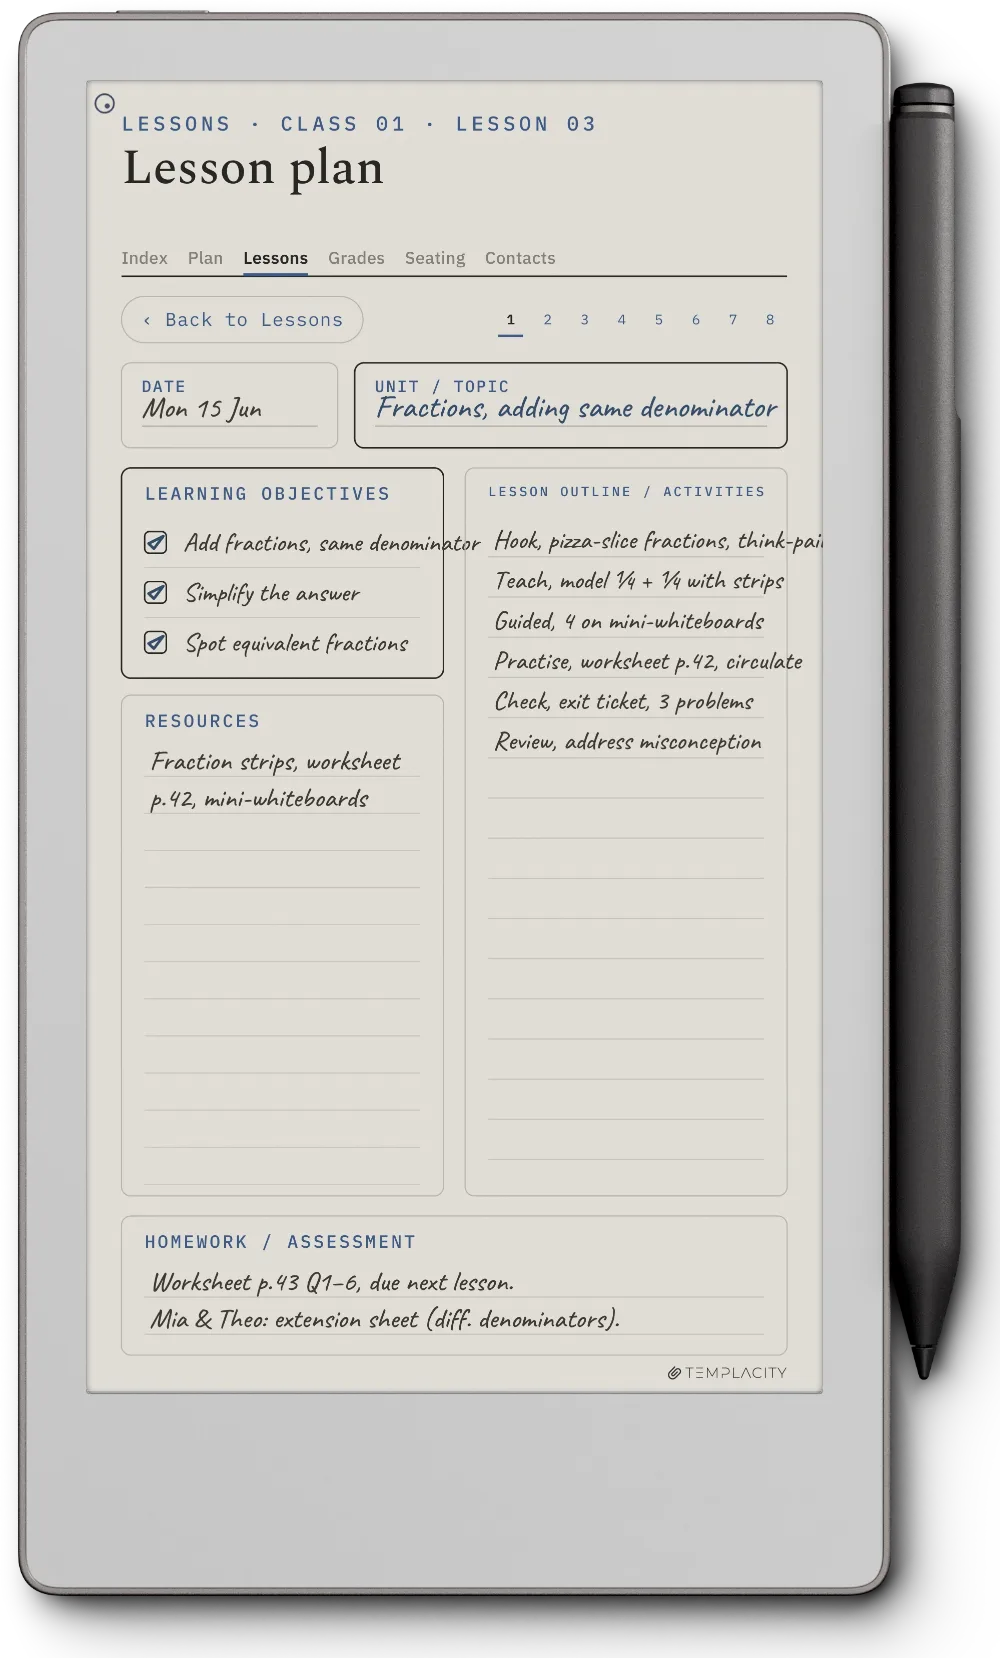 LESSONS · CLASS 01 · LESSON 03
Lesson plan
Index Plan Lessons Grades Seating Contacts
‹ Back to Lessons
1 2 3 4 5 6 7 8
DATE
Mon 15 Jun
UNIT / TOPIC
Fractions, adding same denominator
LEARNING OBJECTIVES
Add fractions, same denominator
Simplify the answer
Spot equivalent fractions
RESOURCES
Fraction strips, worksheet
p.42, mini-whiteboards
LESSON OUTLINE / ACTIVITIES
Hook, pizza-slice fractions, think-pai
Teach, model ¼ + ¼ with strips
Guided, 4 on mini-whiteboards
Practise, worksheet p.42, circulate
Check, exit ticket, 3 problems
Review, address misconception
HOMEWORK / ASSESSMENT
Worksheet p.43 Q1–6, due next lesson.
Mia & Theo: extension sheet (diff. denominators).
TEMPLACITY